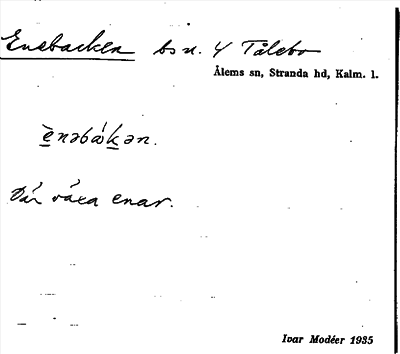 Enebacken bs n. 4 Tålebo
Ålems sn, Stranda hd, Kalm. l.
è̱nəbáḵən.
Där växa enar.
Ivar Modéer 1935